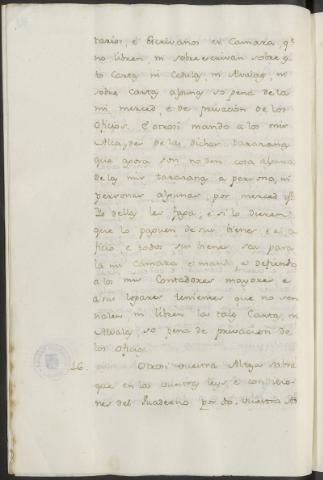 tarios, é Escrivanos de Camara, q.e
no libren, ni sobreescrivan sobre es
to Carta, ni Cedula, ni Alvala, ni
sobre carta alguna so pena de la
mi merced, é de privacion de los
Oficios. É otrosi mando a los mis
Alcaydes de las dichas Tarazanas
que agora son no den cosa alguna
de las mis Tarazanas a persona, ni
personas algunas, por merced q.e
Yo dellas les faga, é si lo dieren
que lo paguen de sus bienes é el o
ficio é todos sus bienes sea para
la mi Camara é mando é defiendo
a los mis Contadores mayores é
a sus logares tenientes que no sen
nalen, ni libren las tales Cartas, ni
Alvala, so pena de privacion de
los oficios.
26. Otrosi vuestra Alteza sabrá
que en las vuestras leys, é condicio-
nes del Quaderno por do vuestra